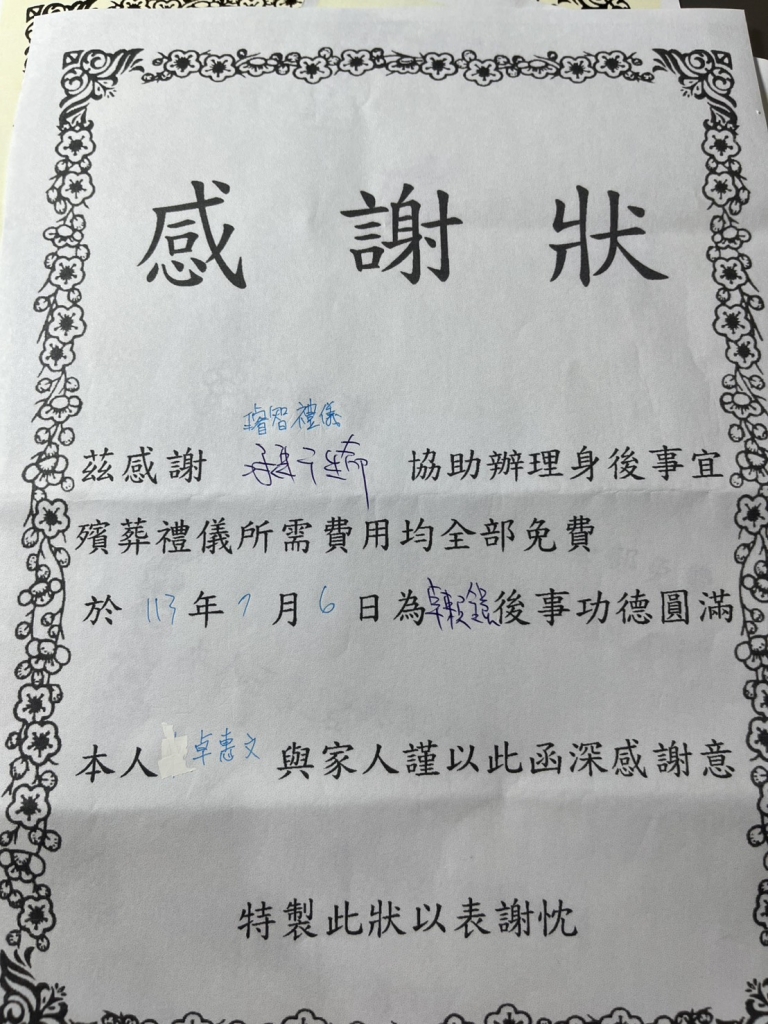 感謝狀
睿智禮儀
茲感謝 協助辦理身後事宜
殯葬禮儀所需費用均全部免費
於 113 年 7 月 6 日為卓賴鎰後事功德圓滿
本人 卓惠文 與家人謹以此函深感謝意
特製此狀以表謝忱